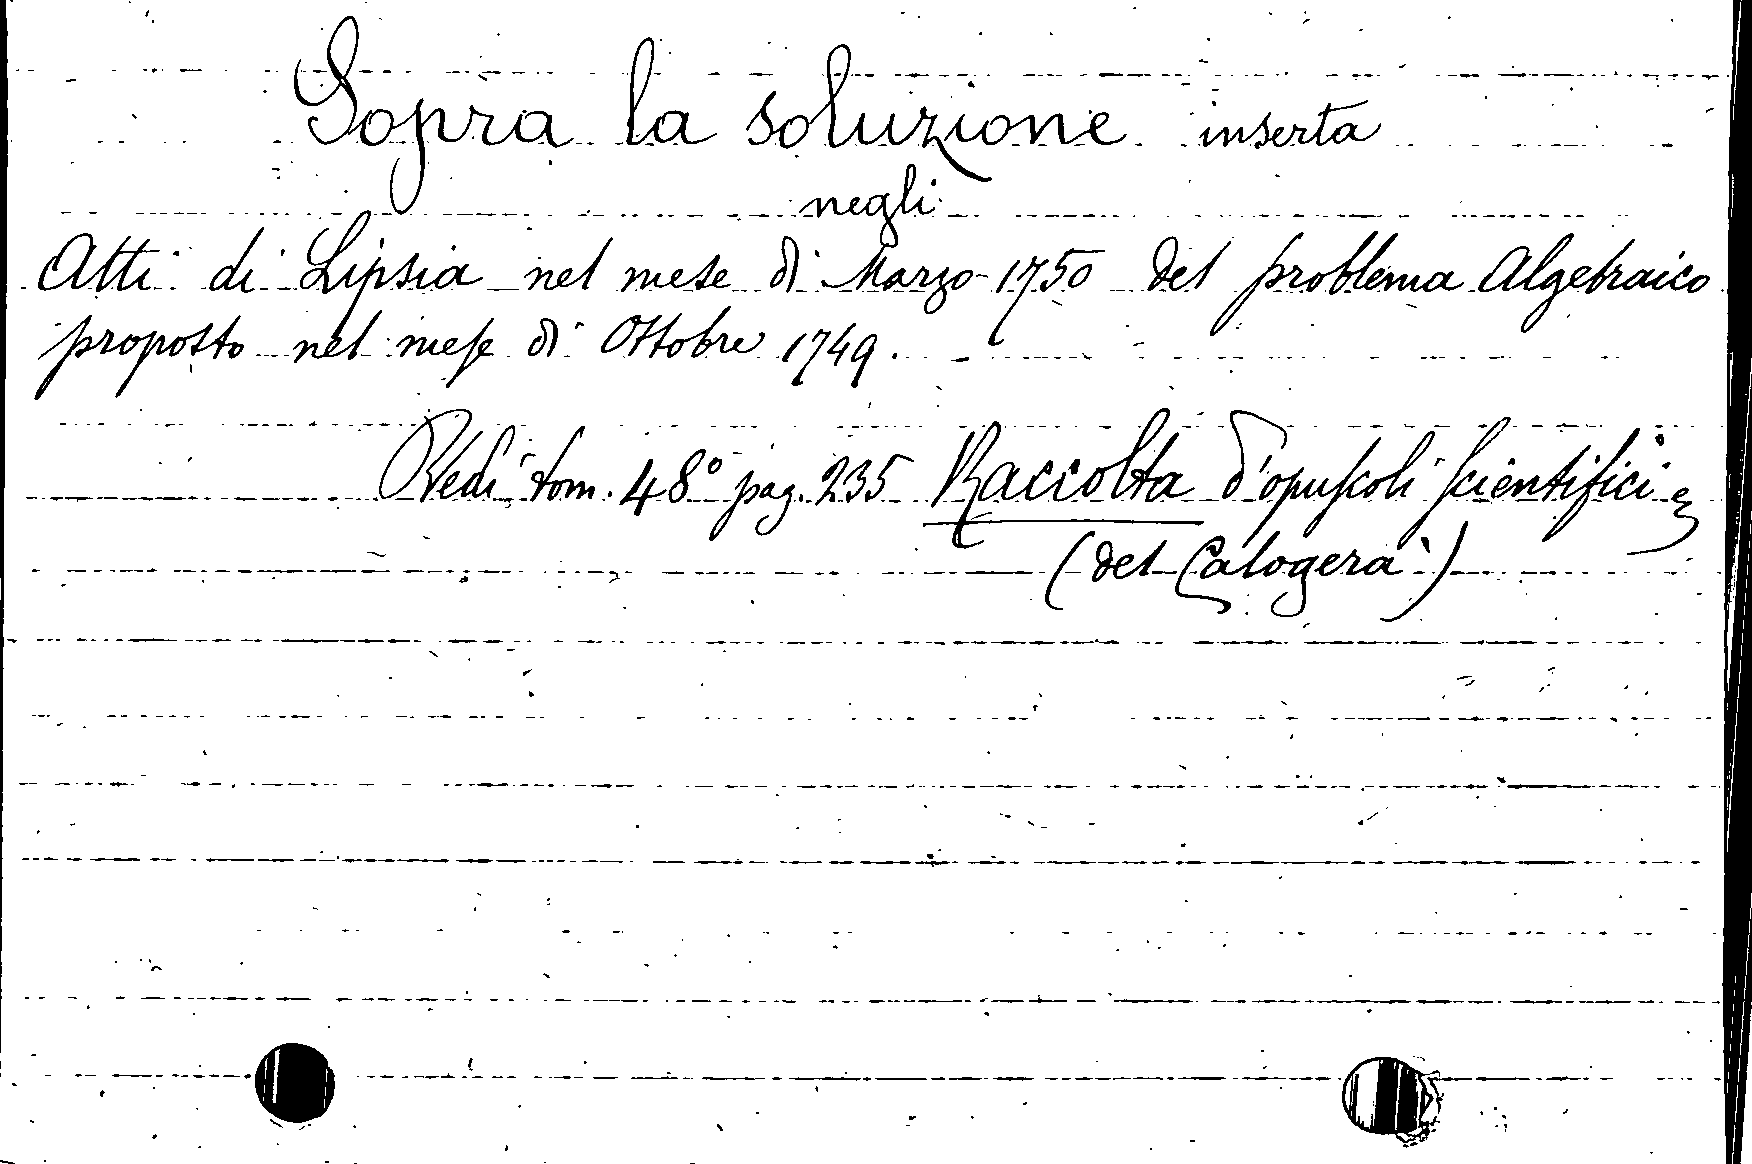 Sopra la soluzione inserta
negli
Atti di Lipsia nel mese di Marzo 1750 del problema Algebraico
proposto nel mese di Ottobre 1749.
Vedi tom. 48° pag. 235 Raccolta d'opuscoli scientifici
(del Calogerà)